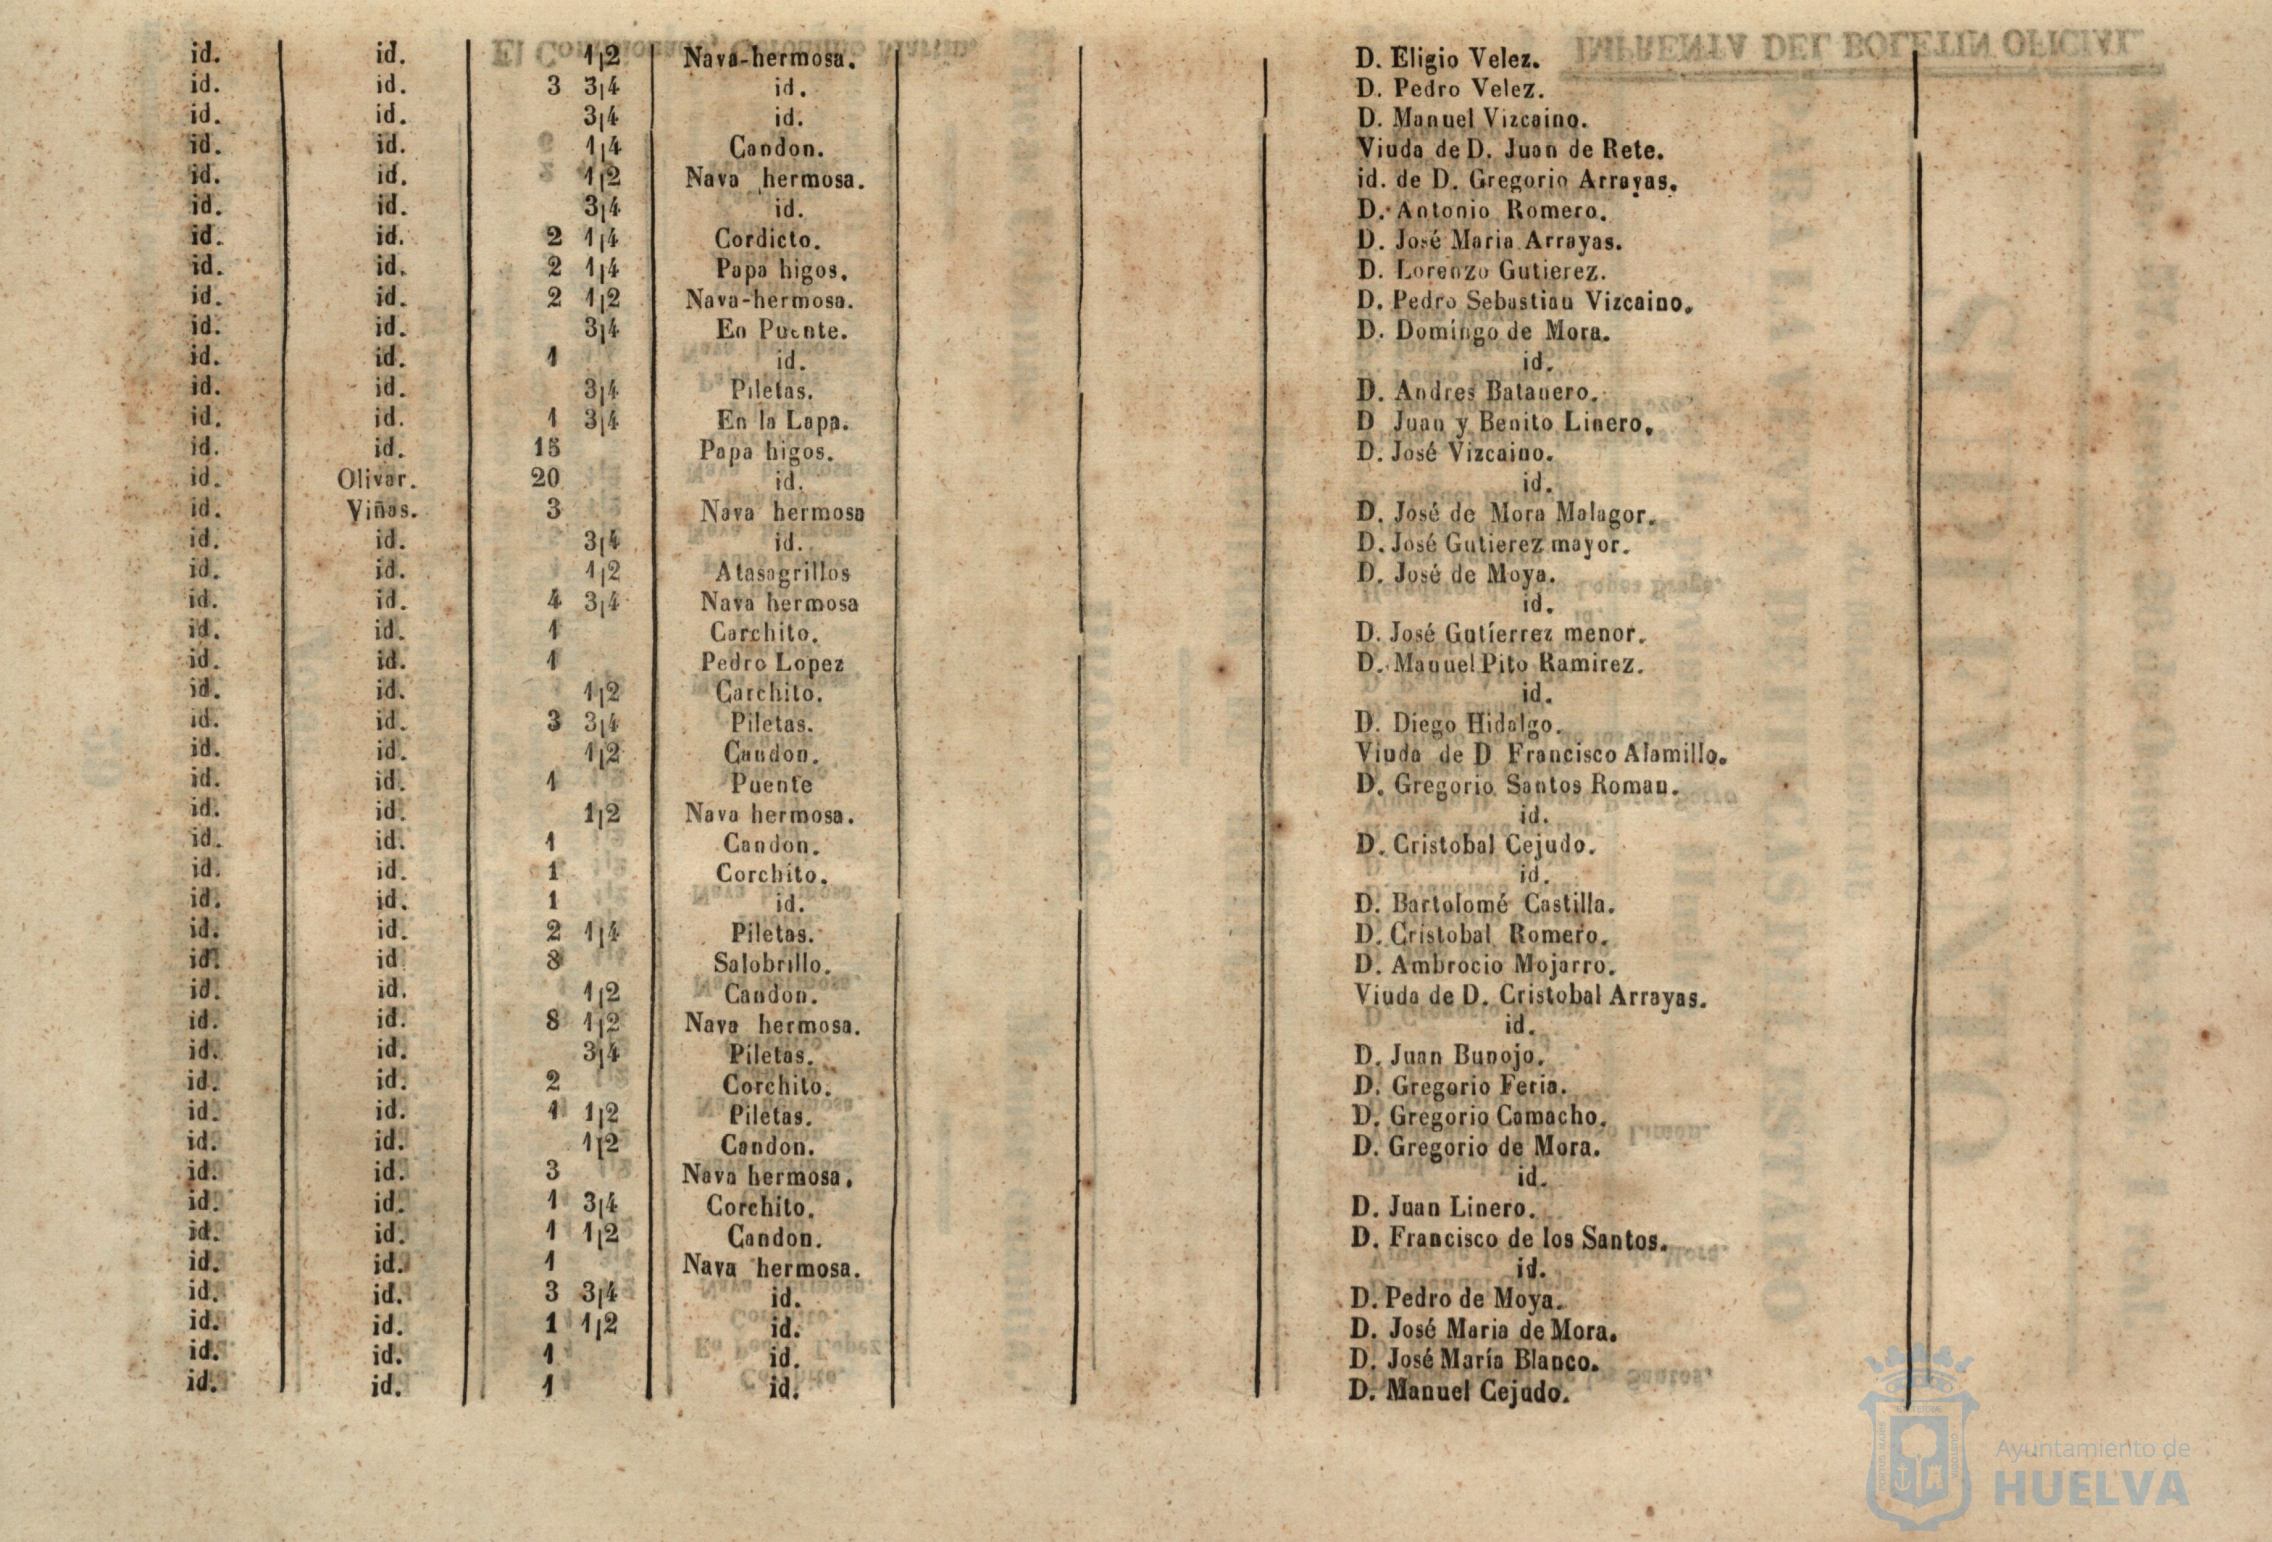 id. id. 1|2 Nava-hermosa. D. Eligio Velez.
id. id. 3 3|4 id. D. Pedro Velez.
id. id. 3|4 id. D. Manuel Vizcaino.
id. id. 1|4 Candon. Viuda de D. Juan de Rete.
id. id. 1|2 Nava hermosa. id. de D. Gregorio Arrayas.
id. id. 3|4 id. D. Antonio Romero.
id. id. 2 1|4 Cordicto. D. José Maria Arrayas.
id. id. 2 1|4 Papa higos. D. Lorenzo Gutierez.
id. id. 2 1|2 Nava-hermosa. D. Pedro Sebastian Vizcaino.
id. id. 3|4 En Puente. D. Domingo de Mora.
id. id. 1 id. id.
id. id. 3|4 Piletas. D. Andres Batanero.
id. id. 1 3|4 En la Lapa. D Juan y Benito Linero.
id. id. 15 Papa higos. D. José Vizcaino.
id. Olivar. 20 id. id.
id. Viñas. 3 Nava hermosa D. José de Mora Malagor.
id. id. 3|4 id. D. José Gutierez mayor.
id. id. 1|2 Atasagrillos D. José de Moya.
id. id. 4 3|4 Nava hermosa id.
id. id. 1 Carchito. D. José Gutíerrez menor.
id. id. 1 Pedro Lopez D. Manuel Pito Ramirez.
id. id. 1|2 Carchito. id.
id. id. 3 3|4 Piletas. D. Diego Hidalgo.
id. id. 1|2 Candon. Viuda de D Francisco Alamillo.
id. id. 1 Puente D. Gregorio Santos Roman.
id. id. 1|2 Nava hermosa. id.
id. id. 1 Candon. D. Cristobal Cejudo.
id. id. 1 Corchito. id.
id. id. 1 id. D. Bartolomé Castilla.
id. id. 2 1|4 Piletas. D. Cristobal Romero.
id. id 3 Salobrillo. D. Ambrocio Mojarro.
id. id. 1|2 Candon. Viuda de D. Cristobal Arrayas.
id. id. 8 1|2 Nava hermosa. id.
id. id. 3|4 Piletas. D. Juan Bunojo.
id. id. 2 Corchito. D. Gregorio Feria.
id. id. 1 1|2 Piletas. D. Gregorio Camacho.
id. id. 1|2 Candon. D. Gregorio de Mora.
id. id. 3 Nava hermosa. id.
id. id. 1 3|4 Corchito. D. Juan Linero.
id. id. 1 1|2 Candon. D. Francisco de los Santos.
id. id. 1 Nava hermosa. id.
id. id. 3 3|4 id. D. Pedro de Moya.
id. id. 1 1|2 id. D. José Maria de Mora.
id. id. 1 id. D. José María Blanco.
id. id. 1 id. D. Manuel Cejudo.
Ayuntamiento de
HUELVA